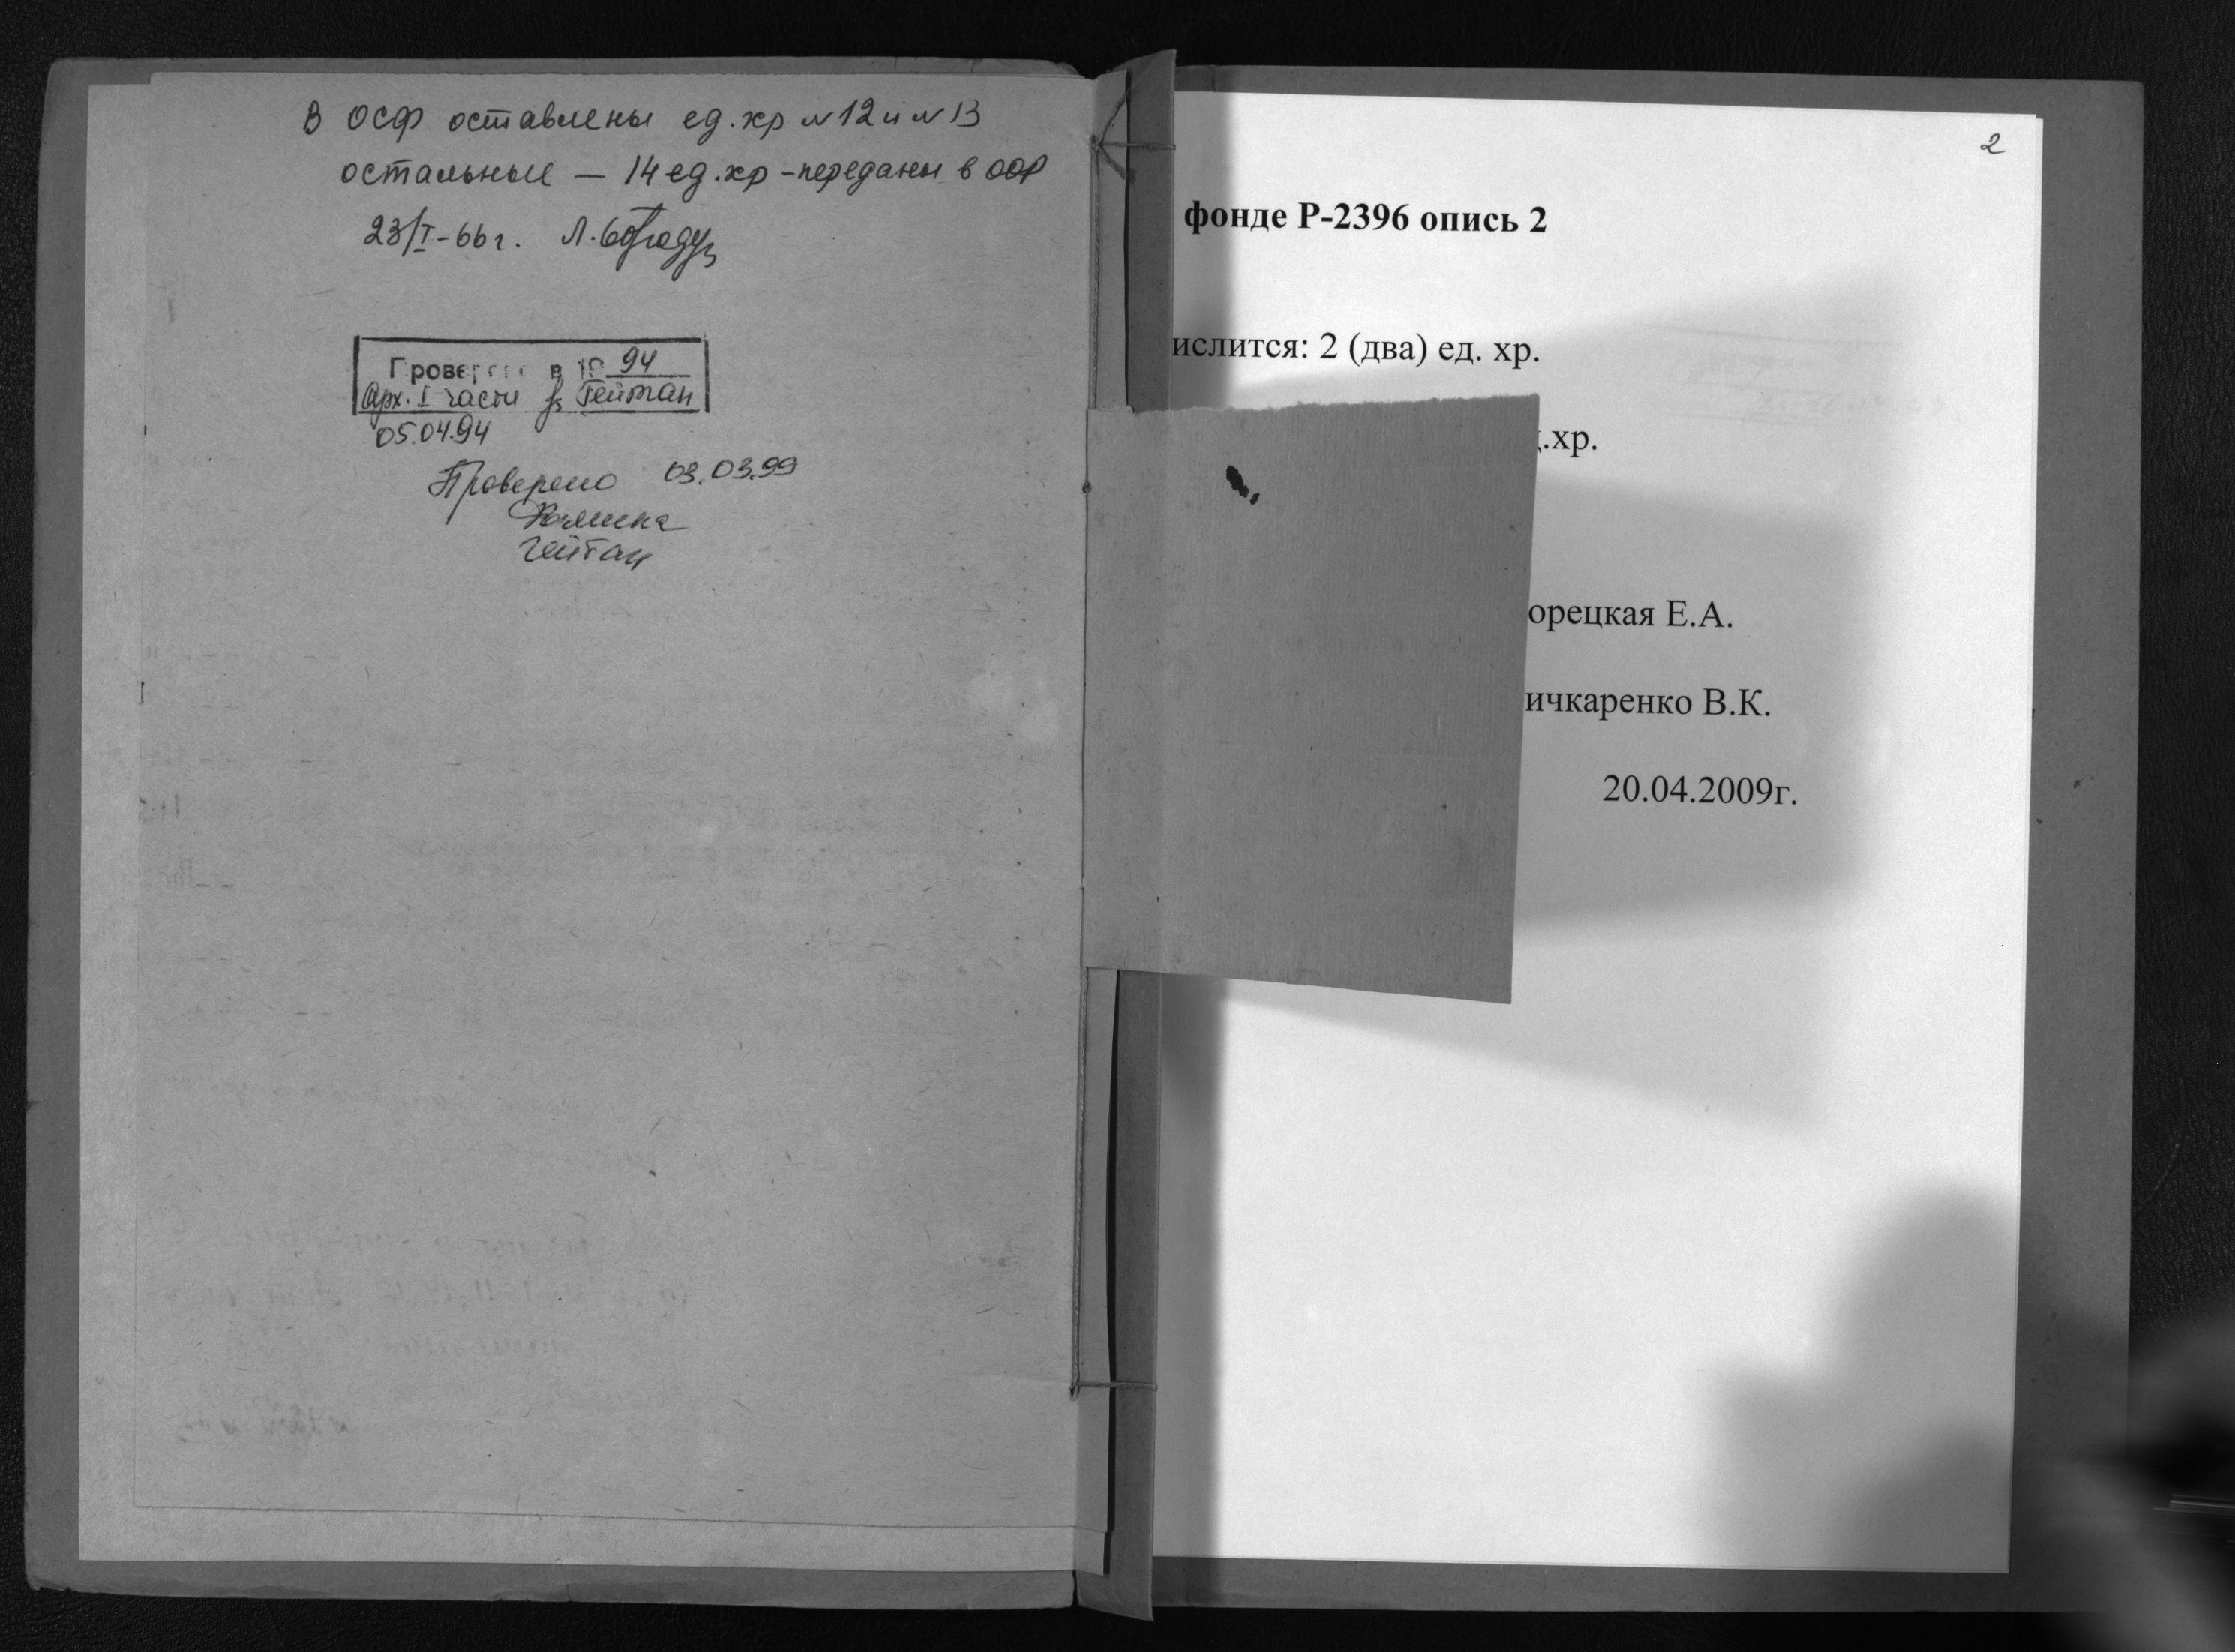 В ОСФ оставлены ед.хр №12 и №13
остальные — 14 ед.хр - переданы в ООФ
23/I-66г. Л.
Проверено в 19 94
Арх. I части Гейтан
05.04.94
Проверено 03.03.99
Гейтан
2
фонде Р-2396 опись 2
ислится: 2 (два) ед. хр.
.хр.
орецкая Е.А.
ичкаренко В.К.
20.04.2009г.